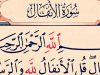 سُورَةُ الأَنْفَالِ
بِسْمِ اللَّهِ الرَّحْمَٰنِ الرَّحِيمِ
قُلِ الأَنْفَالُ لِلَّهِ وَالرَّ